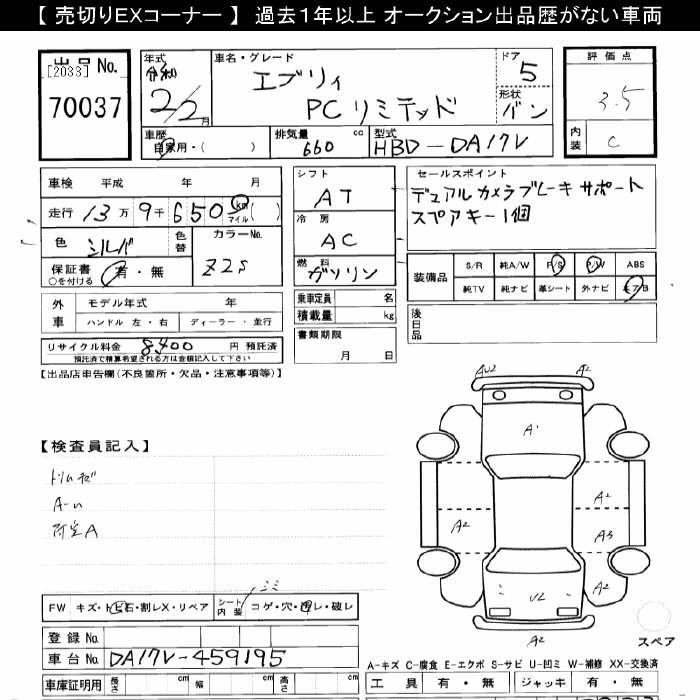 【 売切りEXコーナー 】 過去1年以上 オークション出品歴がない車両
出品No.
[2033]
70037
年式
令和
2/2月
車名・グレード
エブリイ
PCリミテッド
ドア
5
形状
バン
評価点
3.5
内装
C
車歴
自家用・( )
排気量
660 cc
型式
HBD-DA17V
車検 平成 年 月
走行 13万9千650 km マイル( )
色 シルバ 色替
カラーNo.
Z2S
保証書 有・無
○を付ける
シフト
AT
冷房
AC
燃料
ガソリン
乗車定員 名
積載量 kg
書類期限
月 日
セールスポイント
デュアルカメラブレーキ サポート
スペアキー1個
装備品
S/R 純A/W P/S P/W ABS
純TV 純ナビ 革シート 外ナビ エアB
後日品
外車
モデル年式 年
ハンドル 左・右 ディーラー・並行
リサイクル料金 8400 円 預託済
預託済で積算希望される方は金額記入して下さい
【出品店申告欄(不良箇所・欠品・注意事項等)】
【検査員記入】
AU2
A2
A1
A2
A2
A3
A2
U2
A2
スペア
FW キズ・トビ石・割レX・リペア
シート内装 コゲ・穴・汚レ・破レ
登録No.
車台No. DA17V-459195
車庫証明用 長さ cm 幅 cm 高さ cm
A-キズ C-腐食 E-エクボ S-サビ U-凹ミ W-補修 XX-交換済
工具 有・無 ジャッキ 有・無